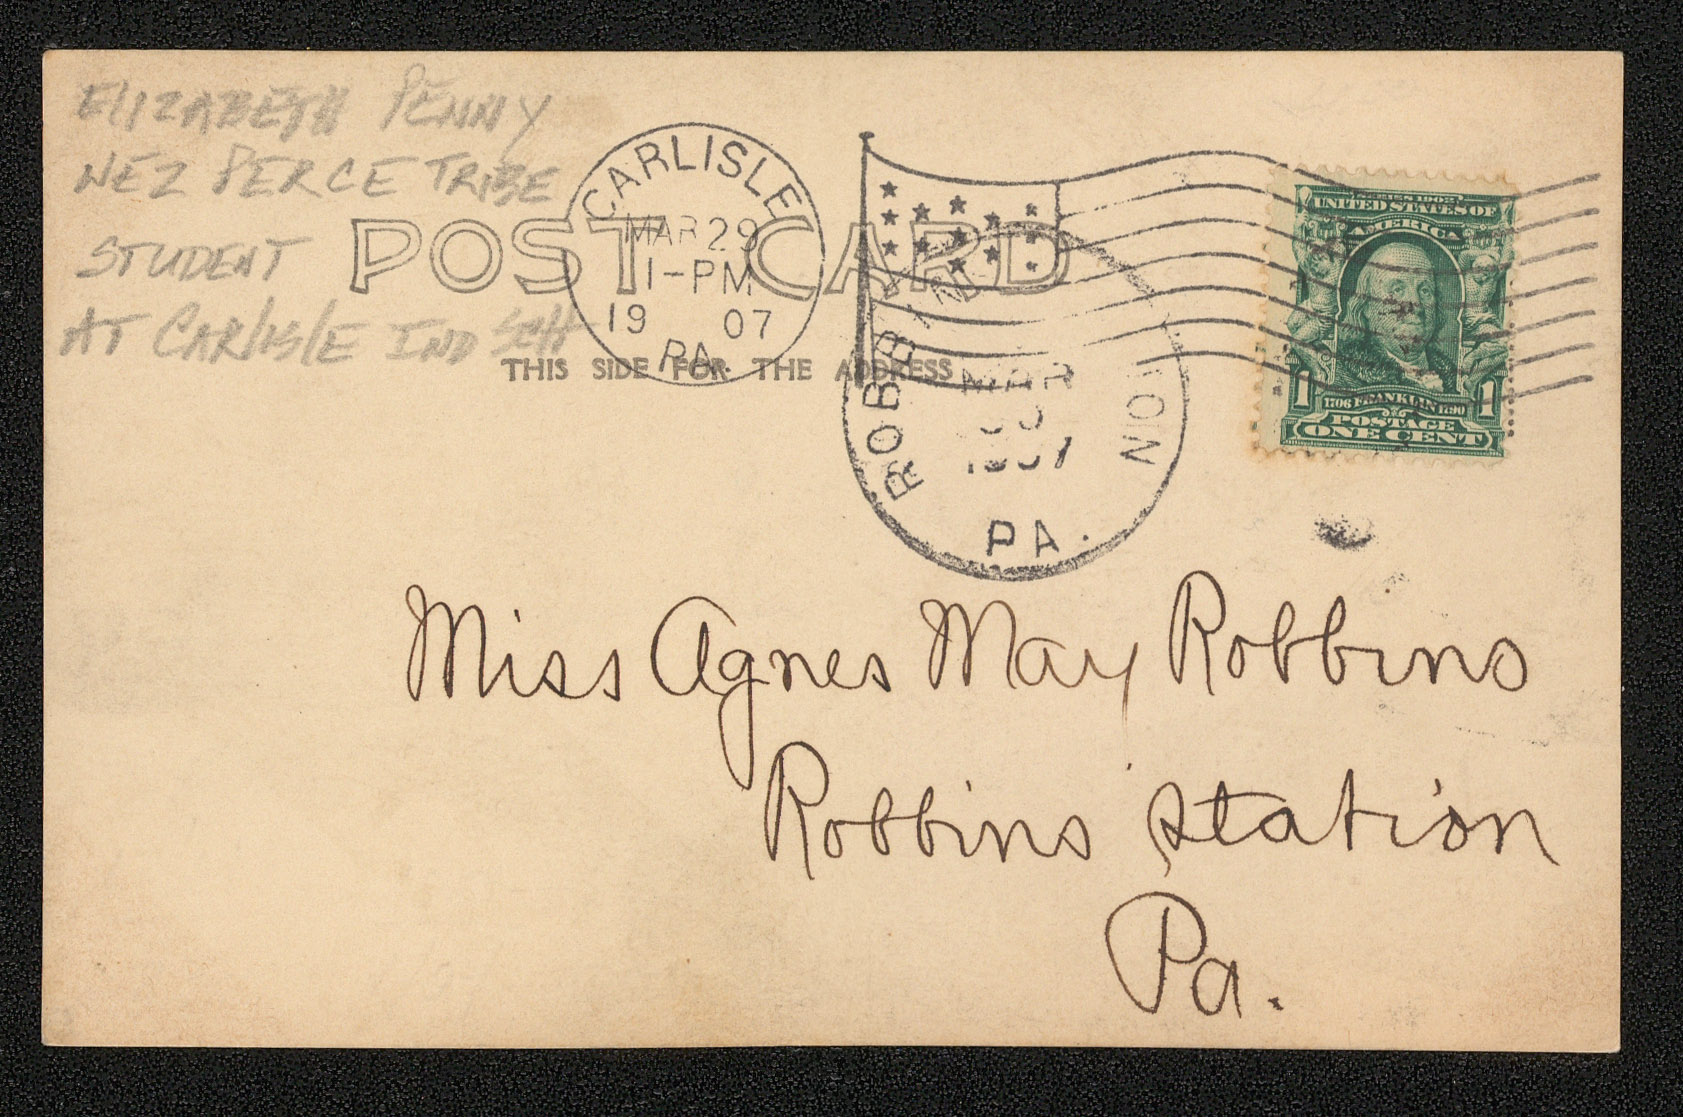 ELIZABETH PENNY
NEZ PERCE TRIBE
STUDENT
AT CARLISLE IND SCH
POST CARD
THIS SIDE FOR THE ADDRESS
CARLISLE
MAR 29
1-PM
1907
PA.
ROBBINS
MAR
1907
PA.
SERIES 1902
UNITED STATES OF
AMERICA
1 1706 FRANKLIN 1790 1
POSTAGE
ONE CENT
Miss Agnes May Robbins
Robbins Station
Pa.